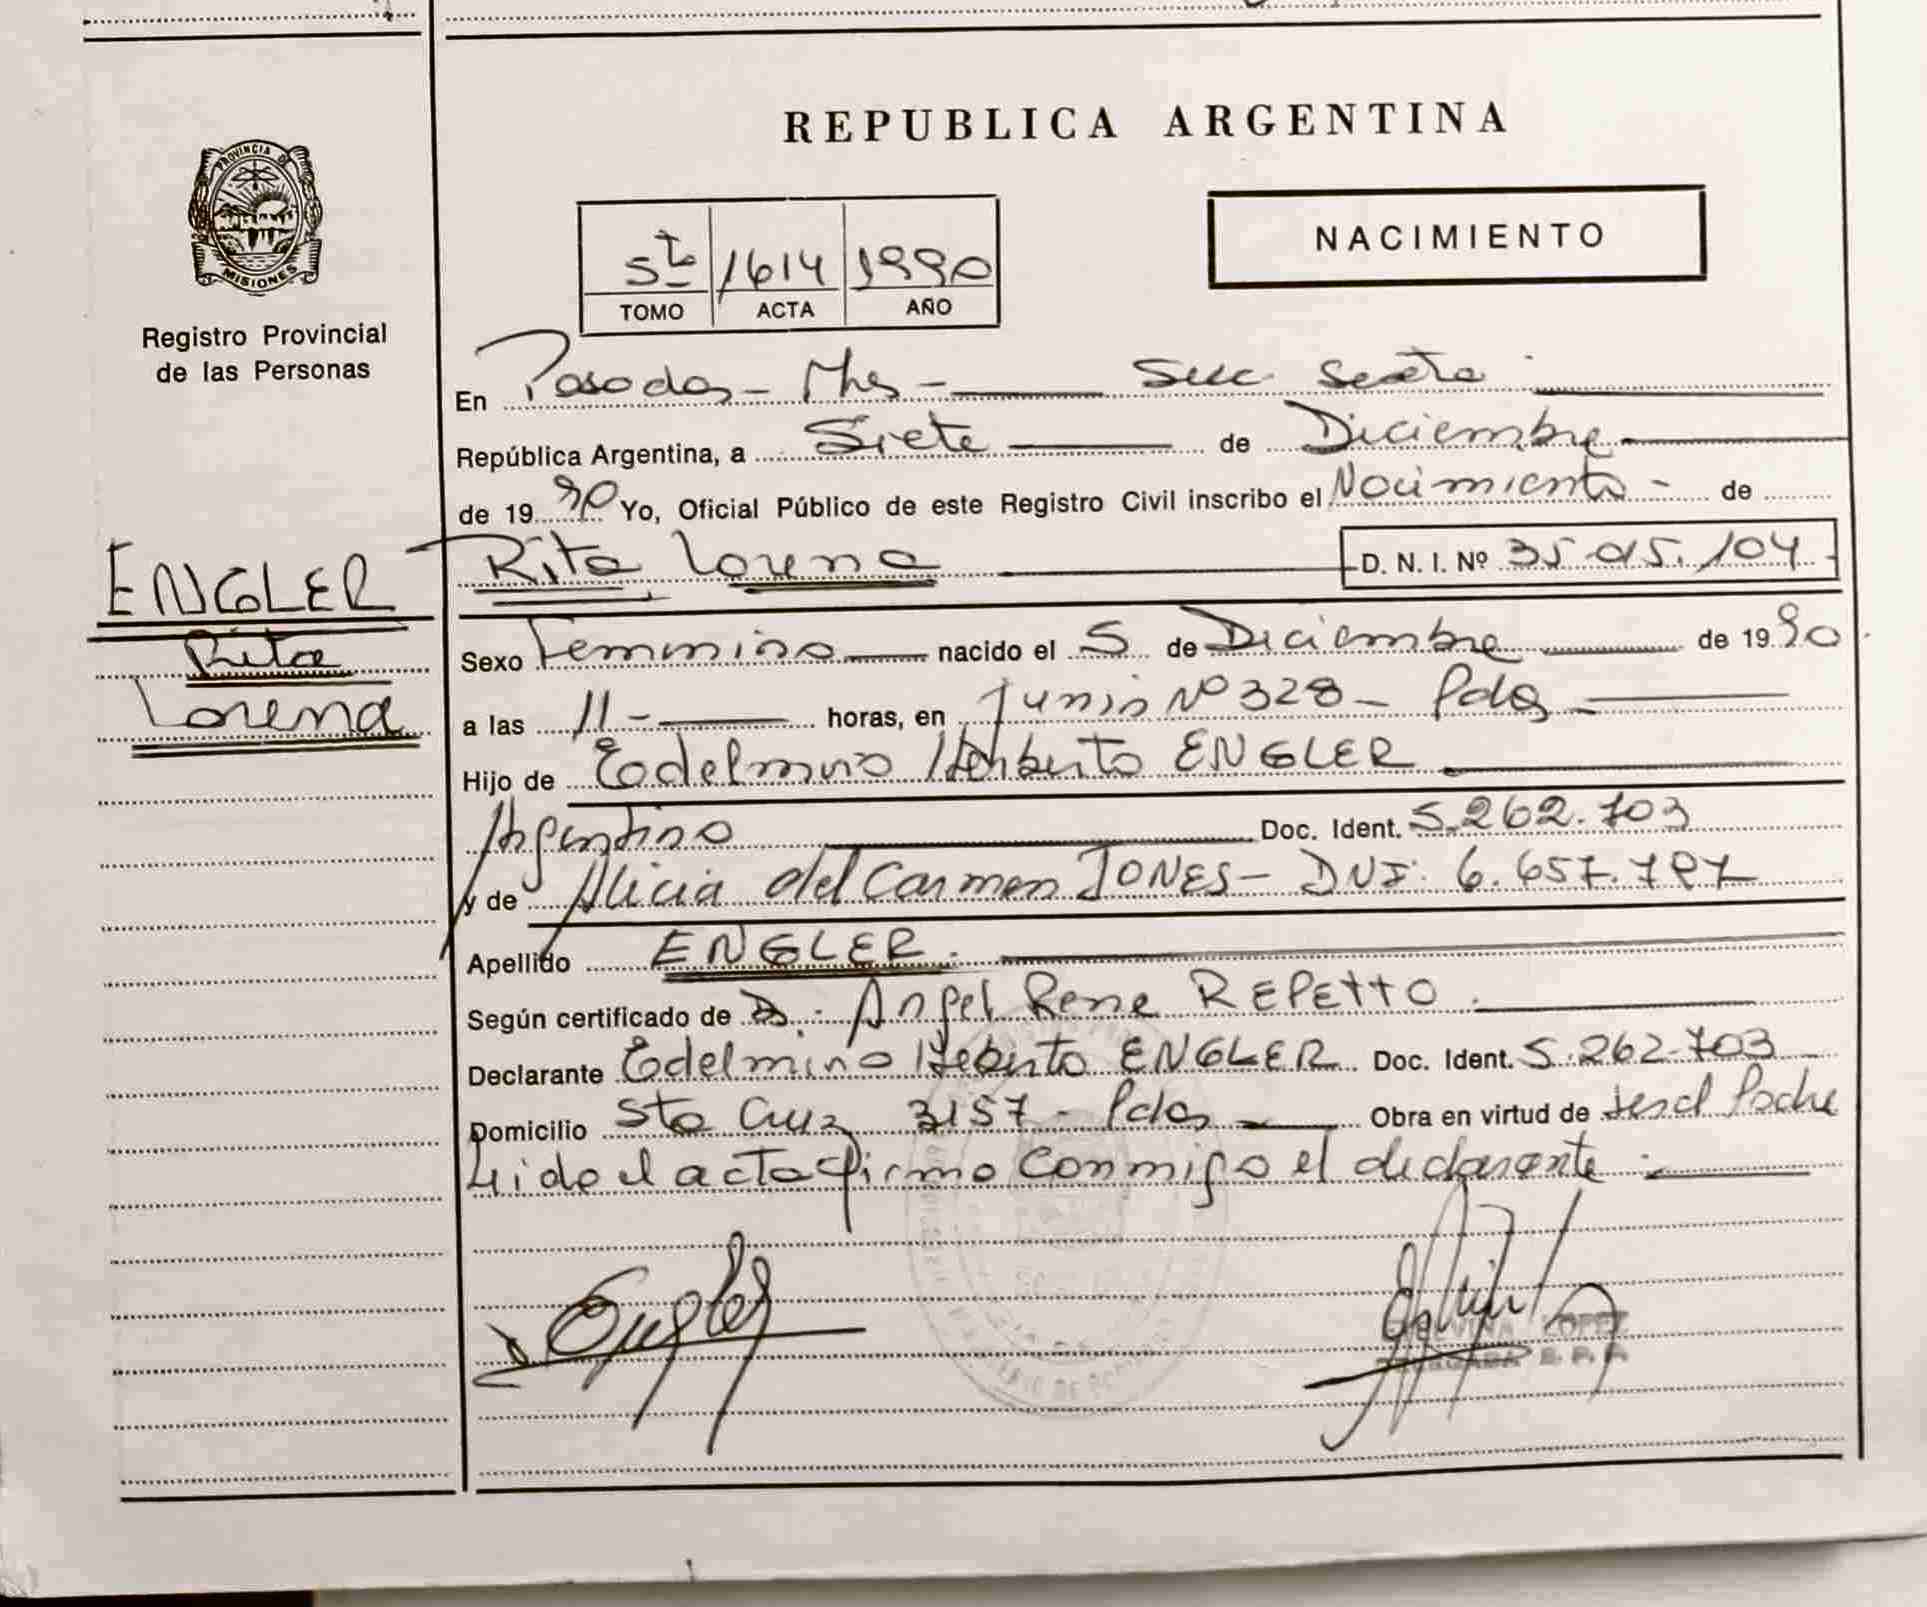 PROVINCIA DE
MISIONES
Registro Provincial
de las Personas
ENGLER
Rita
Lorena
REPUBLICA ARGENTINA
NACIMIENTO
5to 1614 1990
TOMO ACTA AÑO
En Posadas - Mnes - Secc Sexta
República Argentina, a Siete de Diciembre
de 1990 Yo, Oficial Público de este Registro Civil inscribo el Nacimiento - de
Rita Lorena D. N. I. Nº 35.015.104
Sexo Femenino nacido el 5 de Diciembre de 1990
a las 11 - horas, en Junin Nº 328 - Pdas
Hijo de Edelmiro Heriberto ENGLER
Argentino Doc. Ident. 5.262.703
y de Alicia del Carmen JONES - DNI: 6.657.787
Apellido ENGLER.
Según certificado de Dr. Angel Rene REPETTO.
Declarante Edelmiro Heberto ENGLER Doc. Ident. 5.262.703
Domicilio Sta Cruz 3157 - Pdas Obra en virtud de
Leida el acta firma conmigo el declarante.
LOPEZ